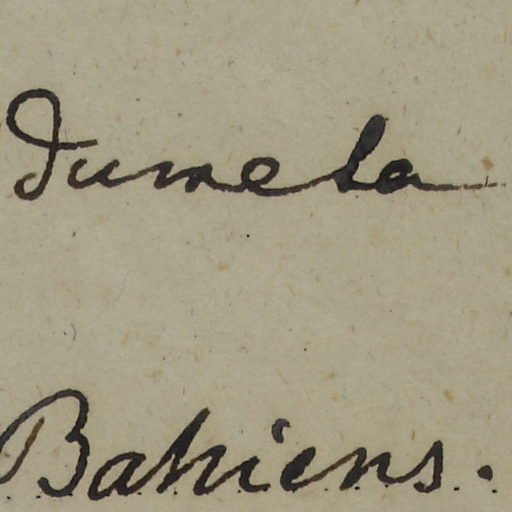 dumeta
Bahiens.